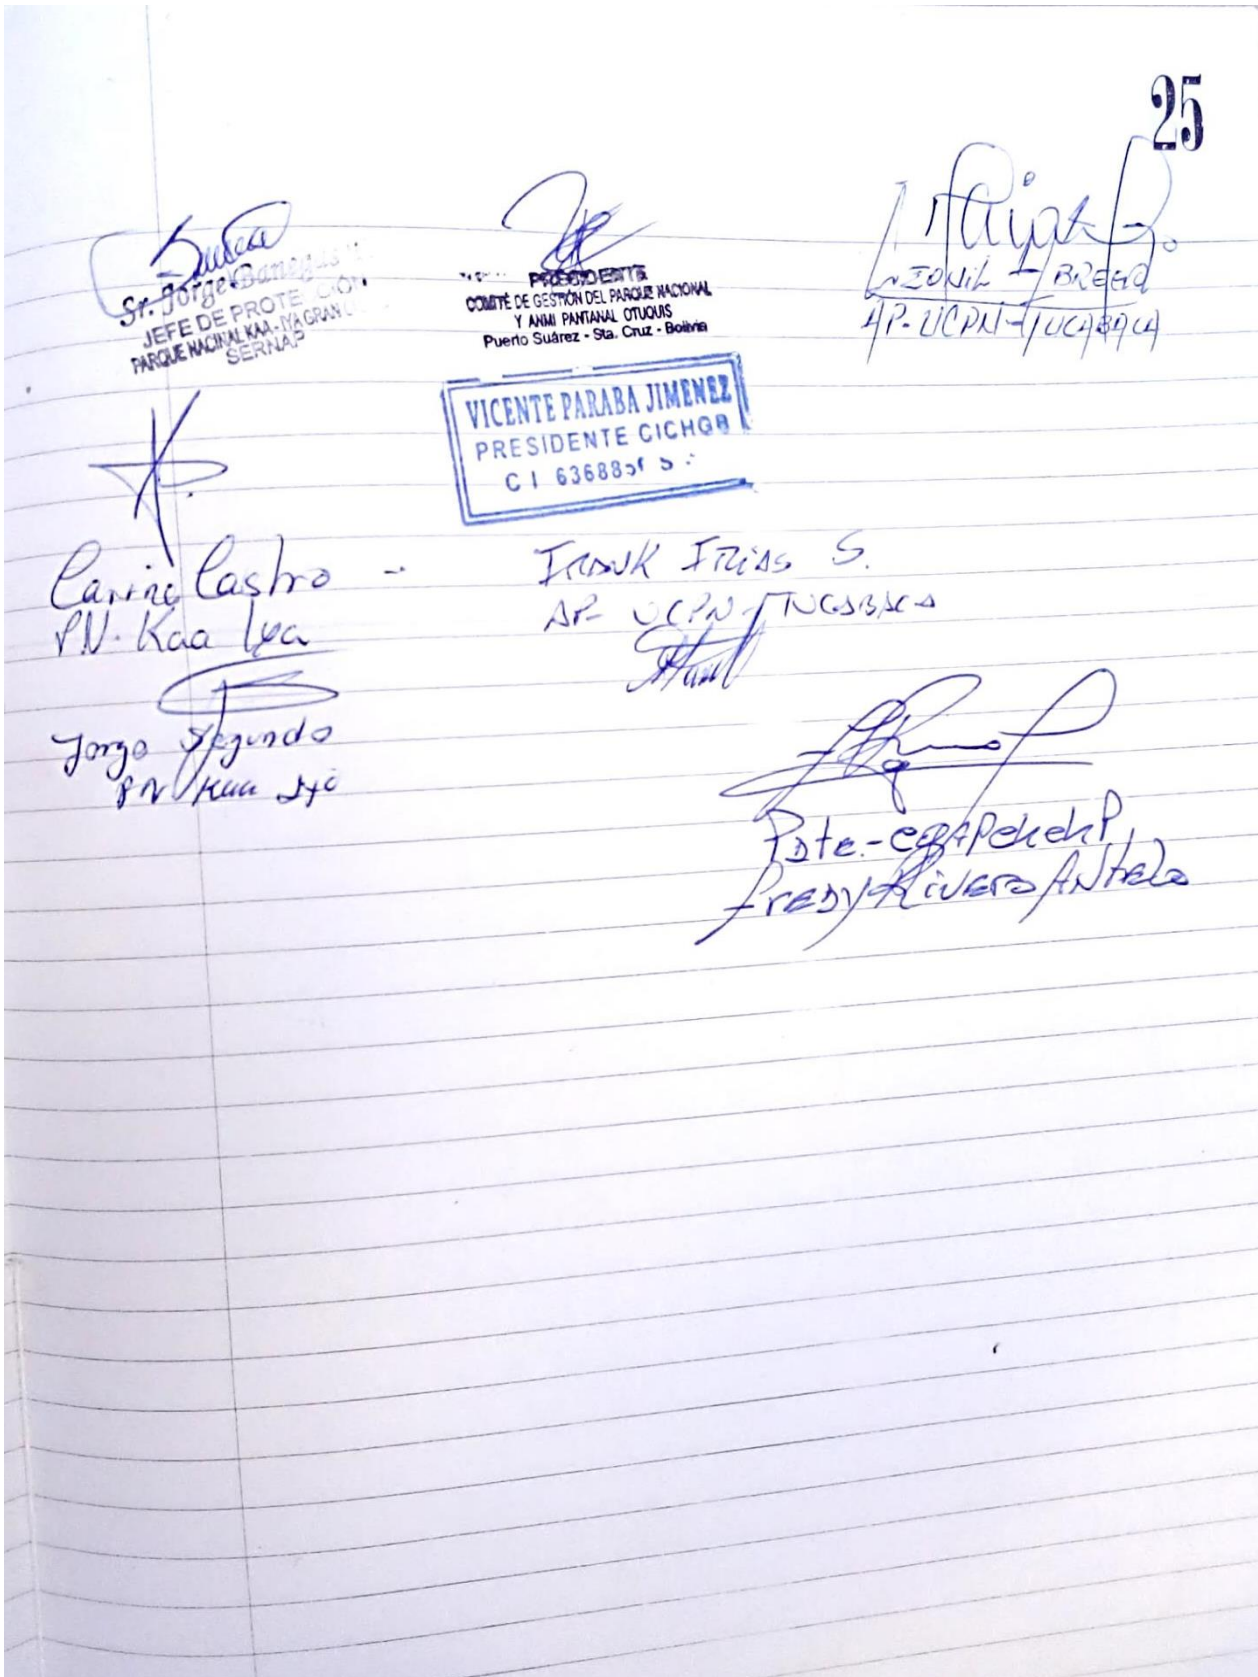 25
Sr. Jorge Banegas
JEFE DE PROTECCIÓN
PARQUE NACINAL KAA - IYA GRAN
SERNAP
PRESIDENTE
COMITÉ DE GESTIÓN DEL PARQUE NACIONAL
Y ANMI PANTANAL OTUQUIS
Puerto Suárez - Sta. Cruz - Bolivia
AP-UCPN-TUCABACA
VICENTE PARABA JIMENEZ
PRESIDENTE CICHGB
C I 63688
Carine Castro -
P.N. Kaa Iya
FRANK FRIAS S.
AP- UCPN-TUCABACA
Jorge Segundo
PN Kaa Iya
Pdte.-
Fredy Rivero Antelo